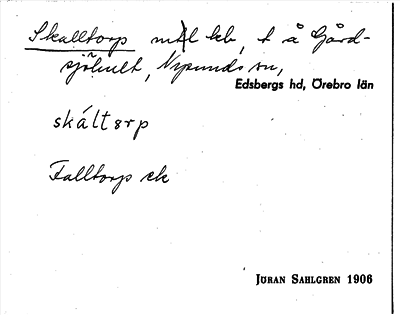 Skalltorp mtl kb, t å Gård-
sjöhult, Nysunds sn,
Edsbergs hd, Örebro län
skáltɞrp
Falltorp ek
JÖRAN SAHLGREN 1906